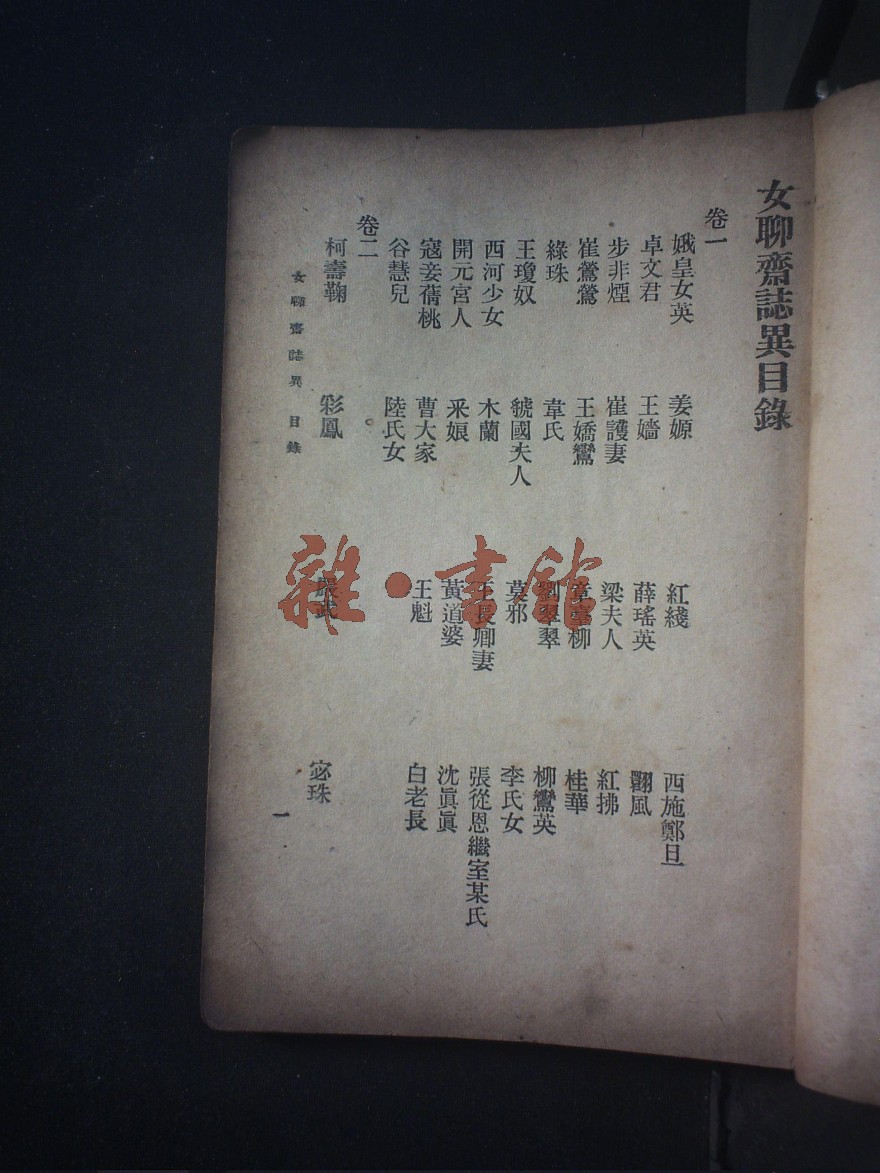 女聊齋誌異目錄
卷一
娥皇女英 姜嫄 紅綫 西施鄭旦
卓文君 王嬙 薛瑤英 翾風
步非煙 崔護妻 梁夫人 紅拂
崔鶯鶯 王嬌鸞 章臺柳 桂華
綠珠 韋氏 劉翠翠 柳鸞英
王瓊奴 虢國夫人 莫邪 李氏女
西河少女 木蘭 王長卿妻 張從恩繼室某氏
開元宮人 釆娘 黃道婆 沈眞眞
寇妾蒨桃 曹大家 王魁 白老長
谷慧兒 陸氏女
卷二
柯壽鞠 彩鳳 嚴武 宓珠
女聊齋誌異 目錄
一
雜·書館